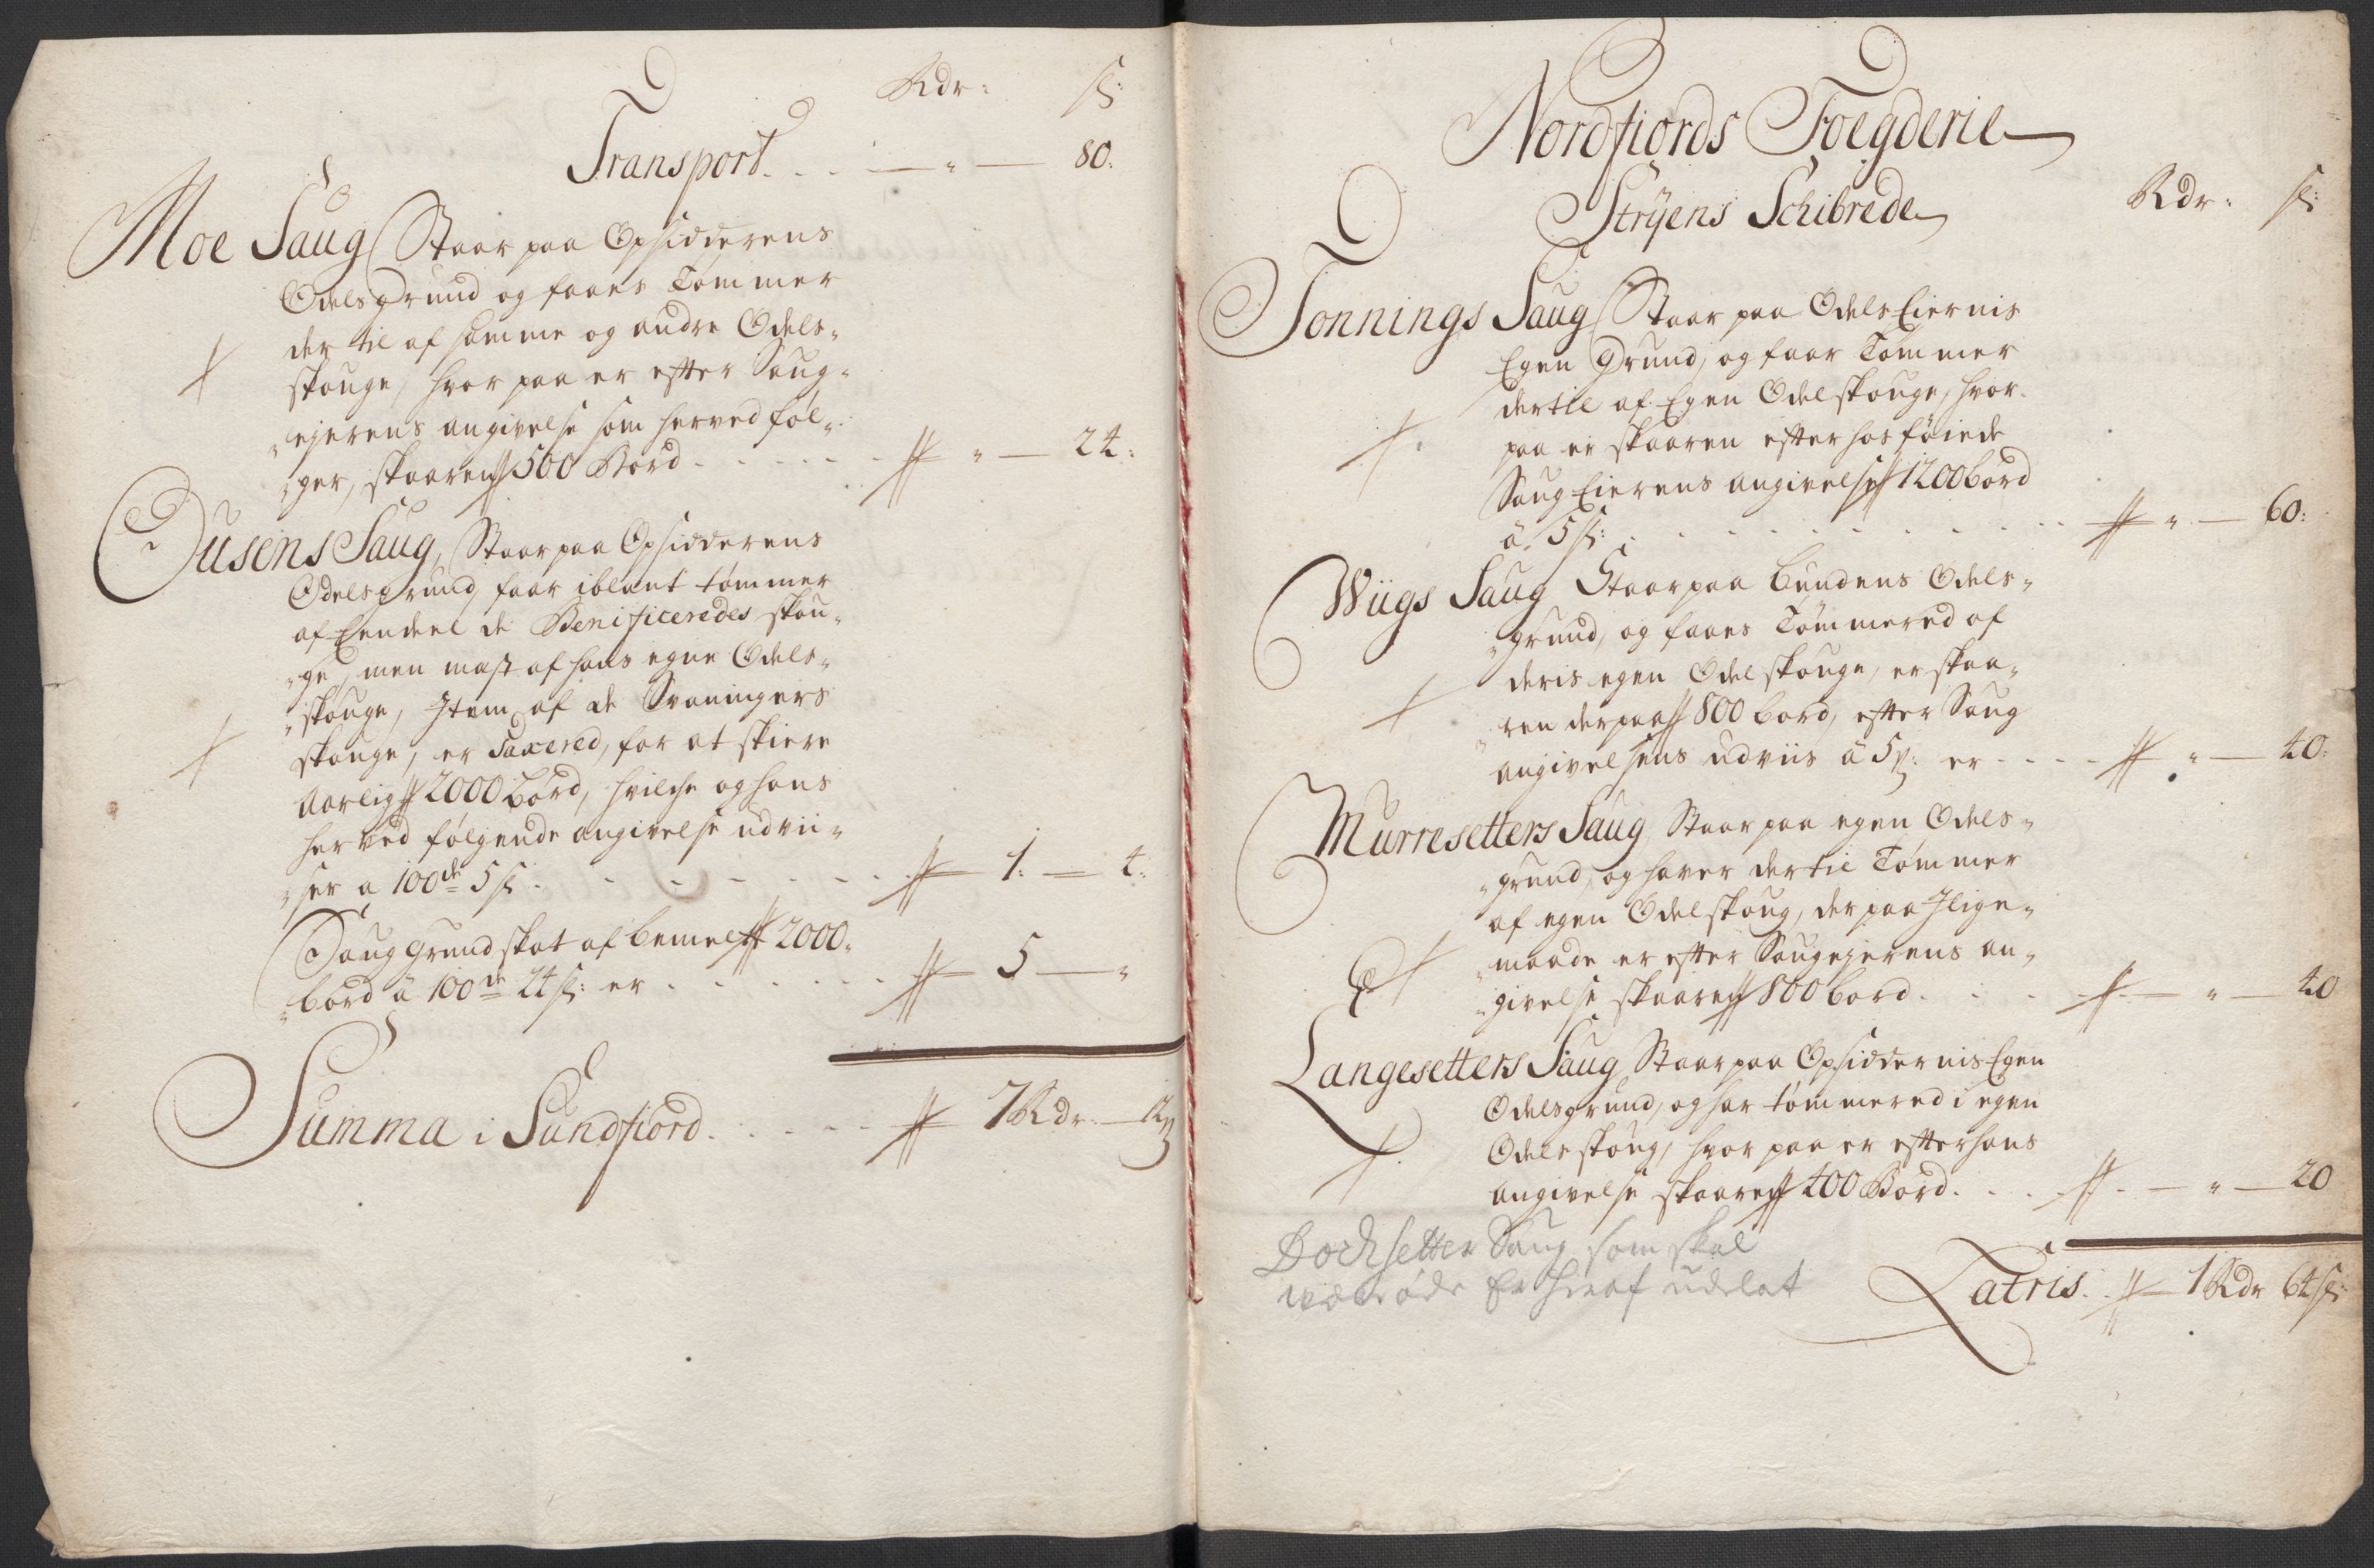 Rdr: ß:
Transport. . . . — " — 80.
Moe Saug Staar paa Opsidderens
Odelsgrund og faaes Tømmer
der til af samme og andre Odels-
skouge, hvor paa er efter Saug-
ejerens angivelse som herved føl-
ger, skaaren 500 Bord . . . . . " — 24:
Dusens Saug, Staar paa Opsidderens
Odelsgrund, faar iblant tømmer
af Eendeel de Benificeredes skou-
ge, men mast af hans egne Odels-
skouge, Item af de Svaningers
skouge, er Taxered, for at skiere
Aarlig 2000 bord, hvilche og hans
herved følgende angivelse udvii-
ser a 100de 5 ß . . . . . . 1: — 4:
Saug Grundskat af bemelte 2000
bord à 100de 24 ß: er . . . . . . 5 — "
Summa i Sundfiord. . . . . 7 Rdr.
Nordfiords Foegderie
Stryens Schibrede
Rdr: ß:
Tonnings Saug Staar paa Odels Eiernis
Egen Grund, og faar Tømmer
dertil af Egen Odelskouge, hvor-
paa er skaaren efter hosføiede
Saug Eierens angivelse 1200 bord
à 5 ß: . . . . . . . . . " — 60:
Wiigs Saug Staar paa bundens Odels-
grund, og faaes Tømmered af
deris egen Odelskouge, er skaa-
ren derpaa 800 bord, efter Saug
angivelsens udviis à 5 ß: er . . . . " — 40:
Murresetters Saug, Staar paa egen Odels-
grund, og haver dertil Tømmer
af egen Odelskoug, der paa Jlige-
maade er efter Saugejerens an-
givelse skaaren 800 bord . . . " — 40
Langesetters Saug, Staar paa Opsiddernis Egen
Odelsgrund, og har tømmered i egen
Odelsskoug, hvor paa er efter hans
angivelse skaaren 400 Bord. . . . " — 20
Bochsetter Saug som skal
være øde Er heraf udelat
Latris. . 1 Rdr 64 ß: